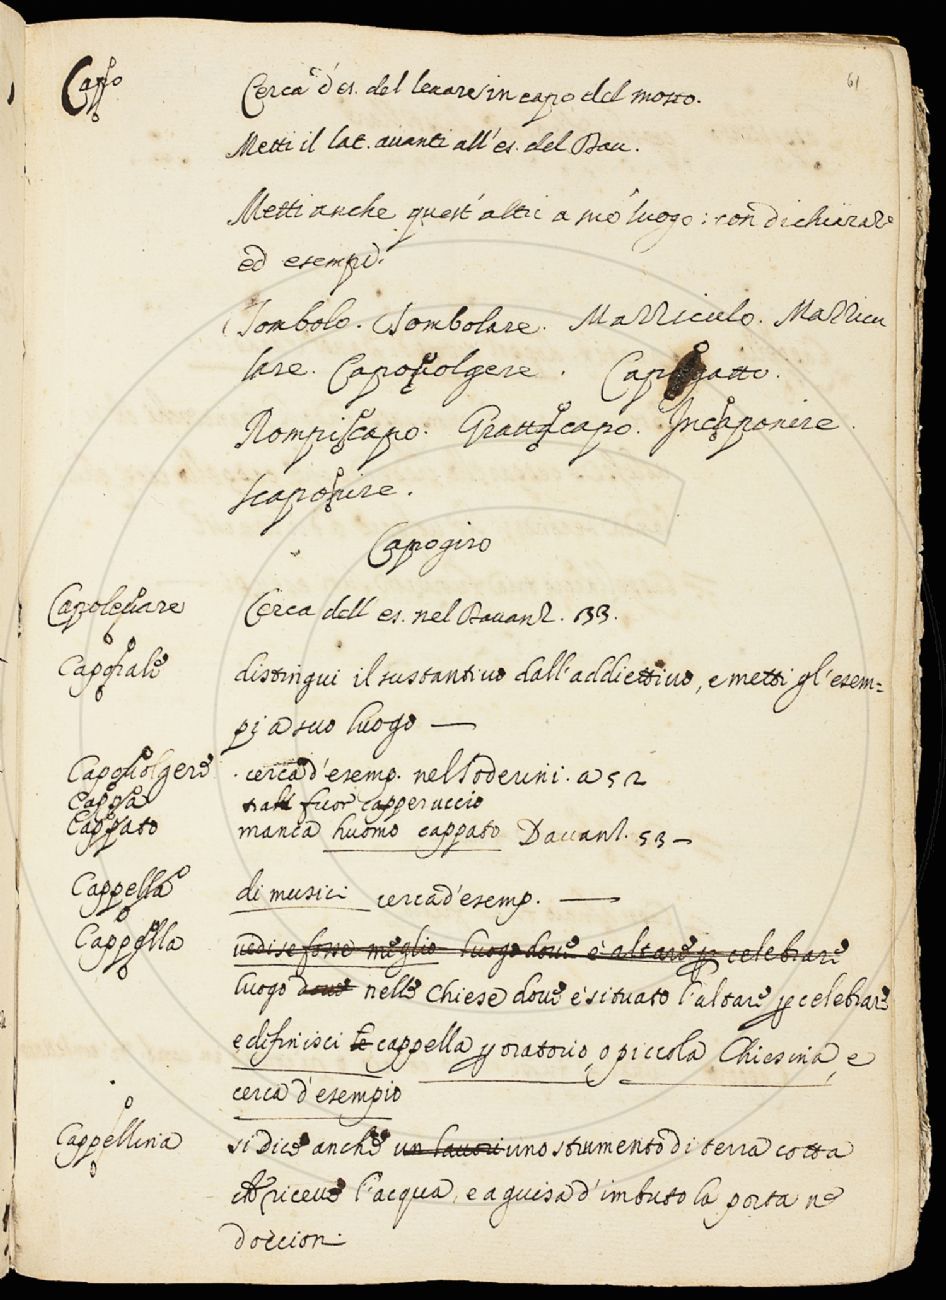 61
Capo Cerca d'es. del leuare in capo del mosto.
Metti il lat. auanti all'es. del Dau.
Metti anche quest'altri a suo luogo: con dichiaraz.e
ed esempi.
Tombolo. Tombolare. Mazziculo. Mazzicu
lare. Capouolgere. Capogatto.
Rompiscapo. Grattacapo. Incaponire.
scaponire.
Capogiro
Capoleuare Cerca dell es. nel Dauanz. 133.
Caporale distingui il sustantiuo dall'addiettiuo, e metti gl'esem=
pj a suo luogo —
Capouolgere. cerca d'esemp. nel Soderini. a 52
Cappa fuor capperuccio
Cappato manca huomo cappato Dauanz. 53 —
Cappella di musici cerca d'esemp. —
Cappella uedi se forse meglio luogo doue è altare p celebrare
luogo doue nelle Chiese doue è situato l'altare p celebrare
e difinisci cappella p oratorio, o piccola Chiesina, e
cerca d'esempio
Cappellina si dice anche un lauori uno strumento di terra cotta
che riceue l'acqua, e a guisa d'imbuto la porta ne
doccioni.